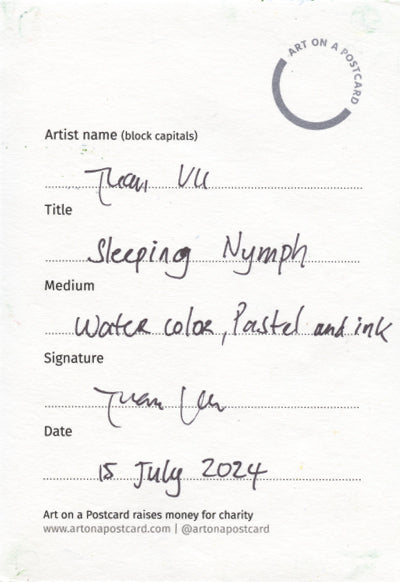 ART ON A POSTCARD
Artist name (block capitals)
Tuan Vu
Title
Sleeping Nymph
Medium
Water color, Pastel and ink
Signature
Tuan Vu
Date
15 July 2024
Art on a Postcard raises money for charity
www.artonapostcard.com | @artonapostcard